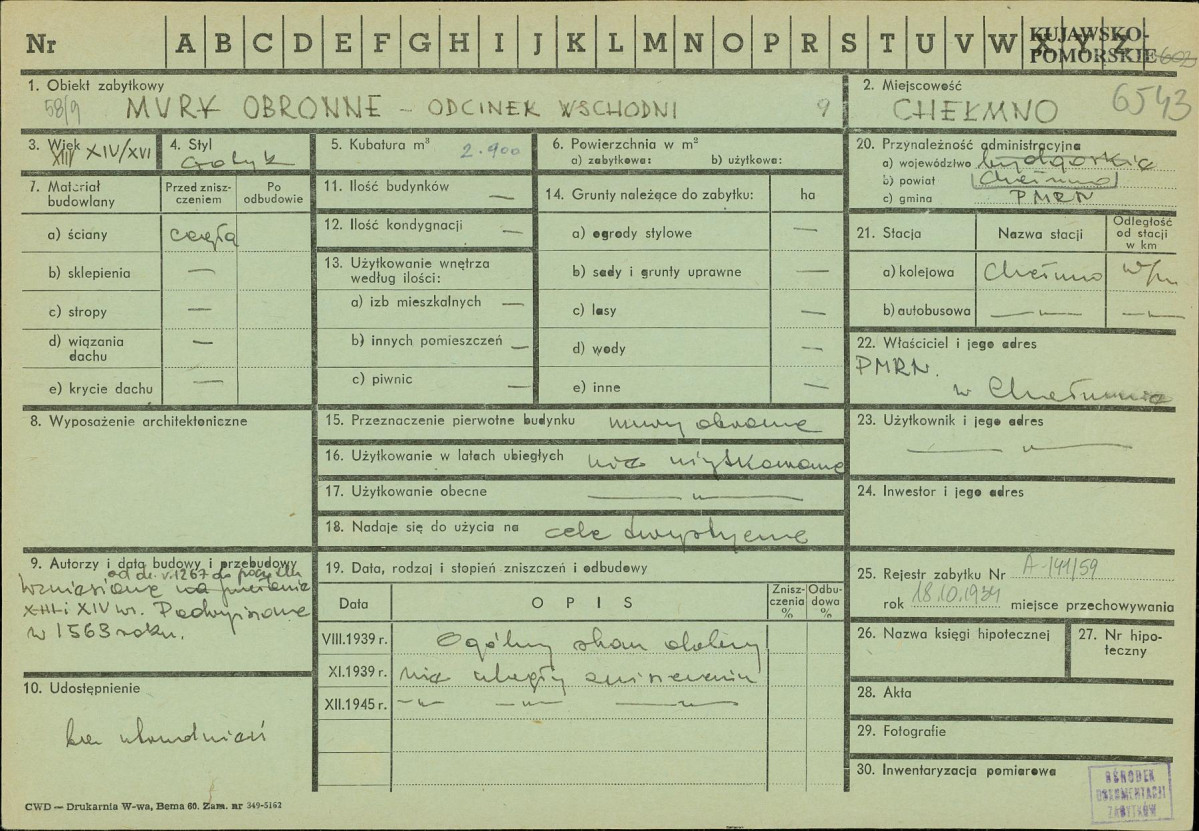 Nr A B C D E F G H I J K L M N O P R S T U V W X Y Z
KUJAWSKO-
POMORSKIE 602
1. Obiekt zabytkowy
58/9 MURY OBRONNE – ODCINEK WSCHODNI 9
2. Miejscowość
CHEŁMNO 6543
3. Wiek
XIII XIV/XVI
4. Styl
Gotyk
5. Kubatura m³ 2.900
6. Powierzchnia w m²
a) zabytkowa: b) użytkowa:
7. Materiał
budowlany
Przed znisz-
czeniem
Po
odbudowie
a) ściany cegła
b) sklepienia —
c) stropy —
d) wiązania
dachu —
e) krycie dachu —
11. Ilość budynków —
12. Ilość kondygnacji —
13. Użytkowanie wnętrza
według ilości:
a) izb mieszkalnych —
b) innych pomieszczeń —
c) piwnic —
14. Grunty należące do zabytku: ha
a) ogrody stylowe —
b) sady i grunty uprawne —
c) lasy —
d) wody —
e) inne —
20. Przynależność administracyjna
a) województwo bydgoskie
b) powiat Chełmno
c) gmina PMRN
21. Stacja Nazwa stacji
Odległość
od stacji
w km
a) kolejowa Chełmno w/m
b) autobusowa —„— —„—
22. Właściciel i jego adres
PMRN.
w Chełmnie
8. Wyposażenie architektoniczne
15. Przeznaczenie pierwotne budynku mury obronne
16. Użytkowanie w latach ubiegłych nie użytkowane
17. Użytkowanie obecne —„—
18. Nadaje się do użycia na cele turystyczne
23. Użytkownik i jego adres
—„—
24. Inwestor i jego adres
9. Autorzy i data budowy i przebudowy
Wzniesione
XIII i XIV w. Podwyższone
w 1563 roku.
10. Udostępnienie
bez utrudnień
19. Data, rodzaj i stopień zniszczeń i odbudowy
Data O P I S
Znisz-
czenia
%
Odbu-
dowa
%
VIII.1939 r. Ogólny stan dobry
XI.1939 r. nie uległy zniszczeniu
XII.1945 r. —„— —„— —„—
25. Rejestr zabytku Nr A-141/59
rok 18.10.1934 miejsce przechowywania
26. Nazwa księgi hipotecznej
27. Nr hipo-
teczny
28. Akta
29. Fotografie
30. Inwentaryzacja pomiarowa
OŚRODEK
DOKUMENTACJI
ZABYTKÓW
CWD — Drukarnia W-wa, Bema 60. Zam. nr 349-5162